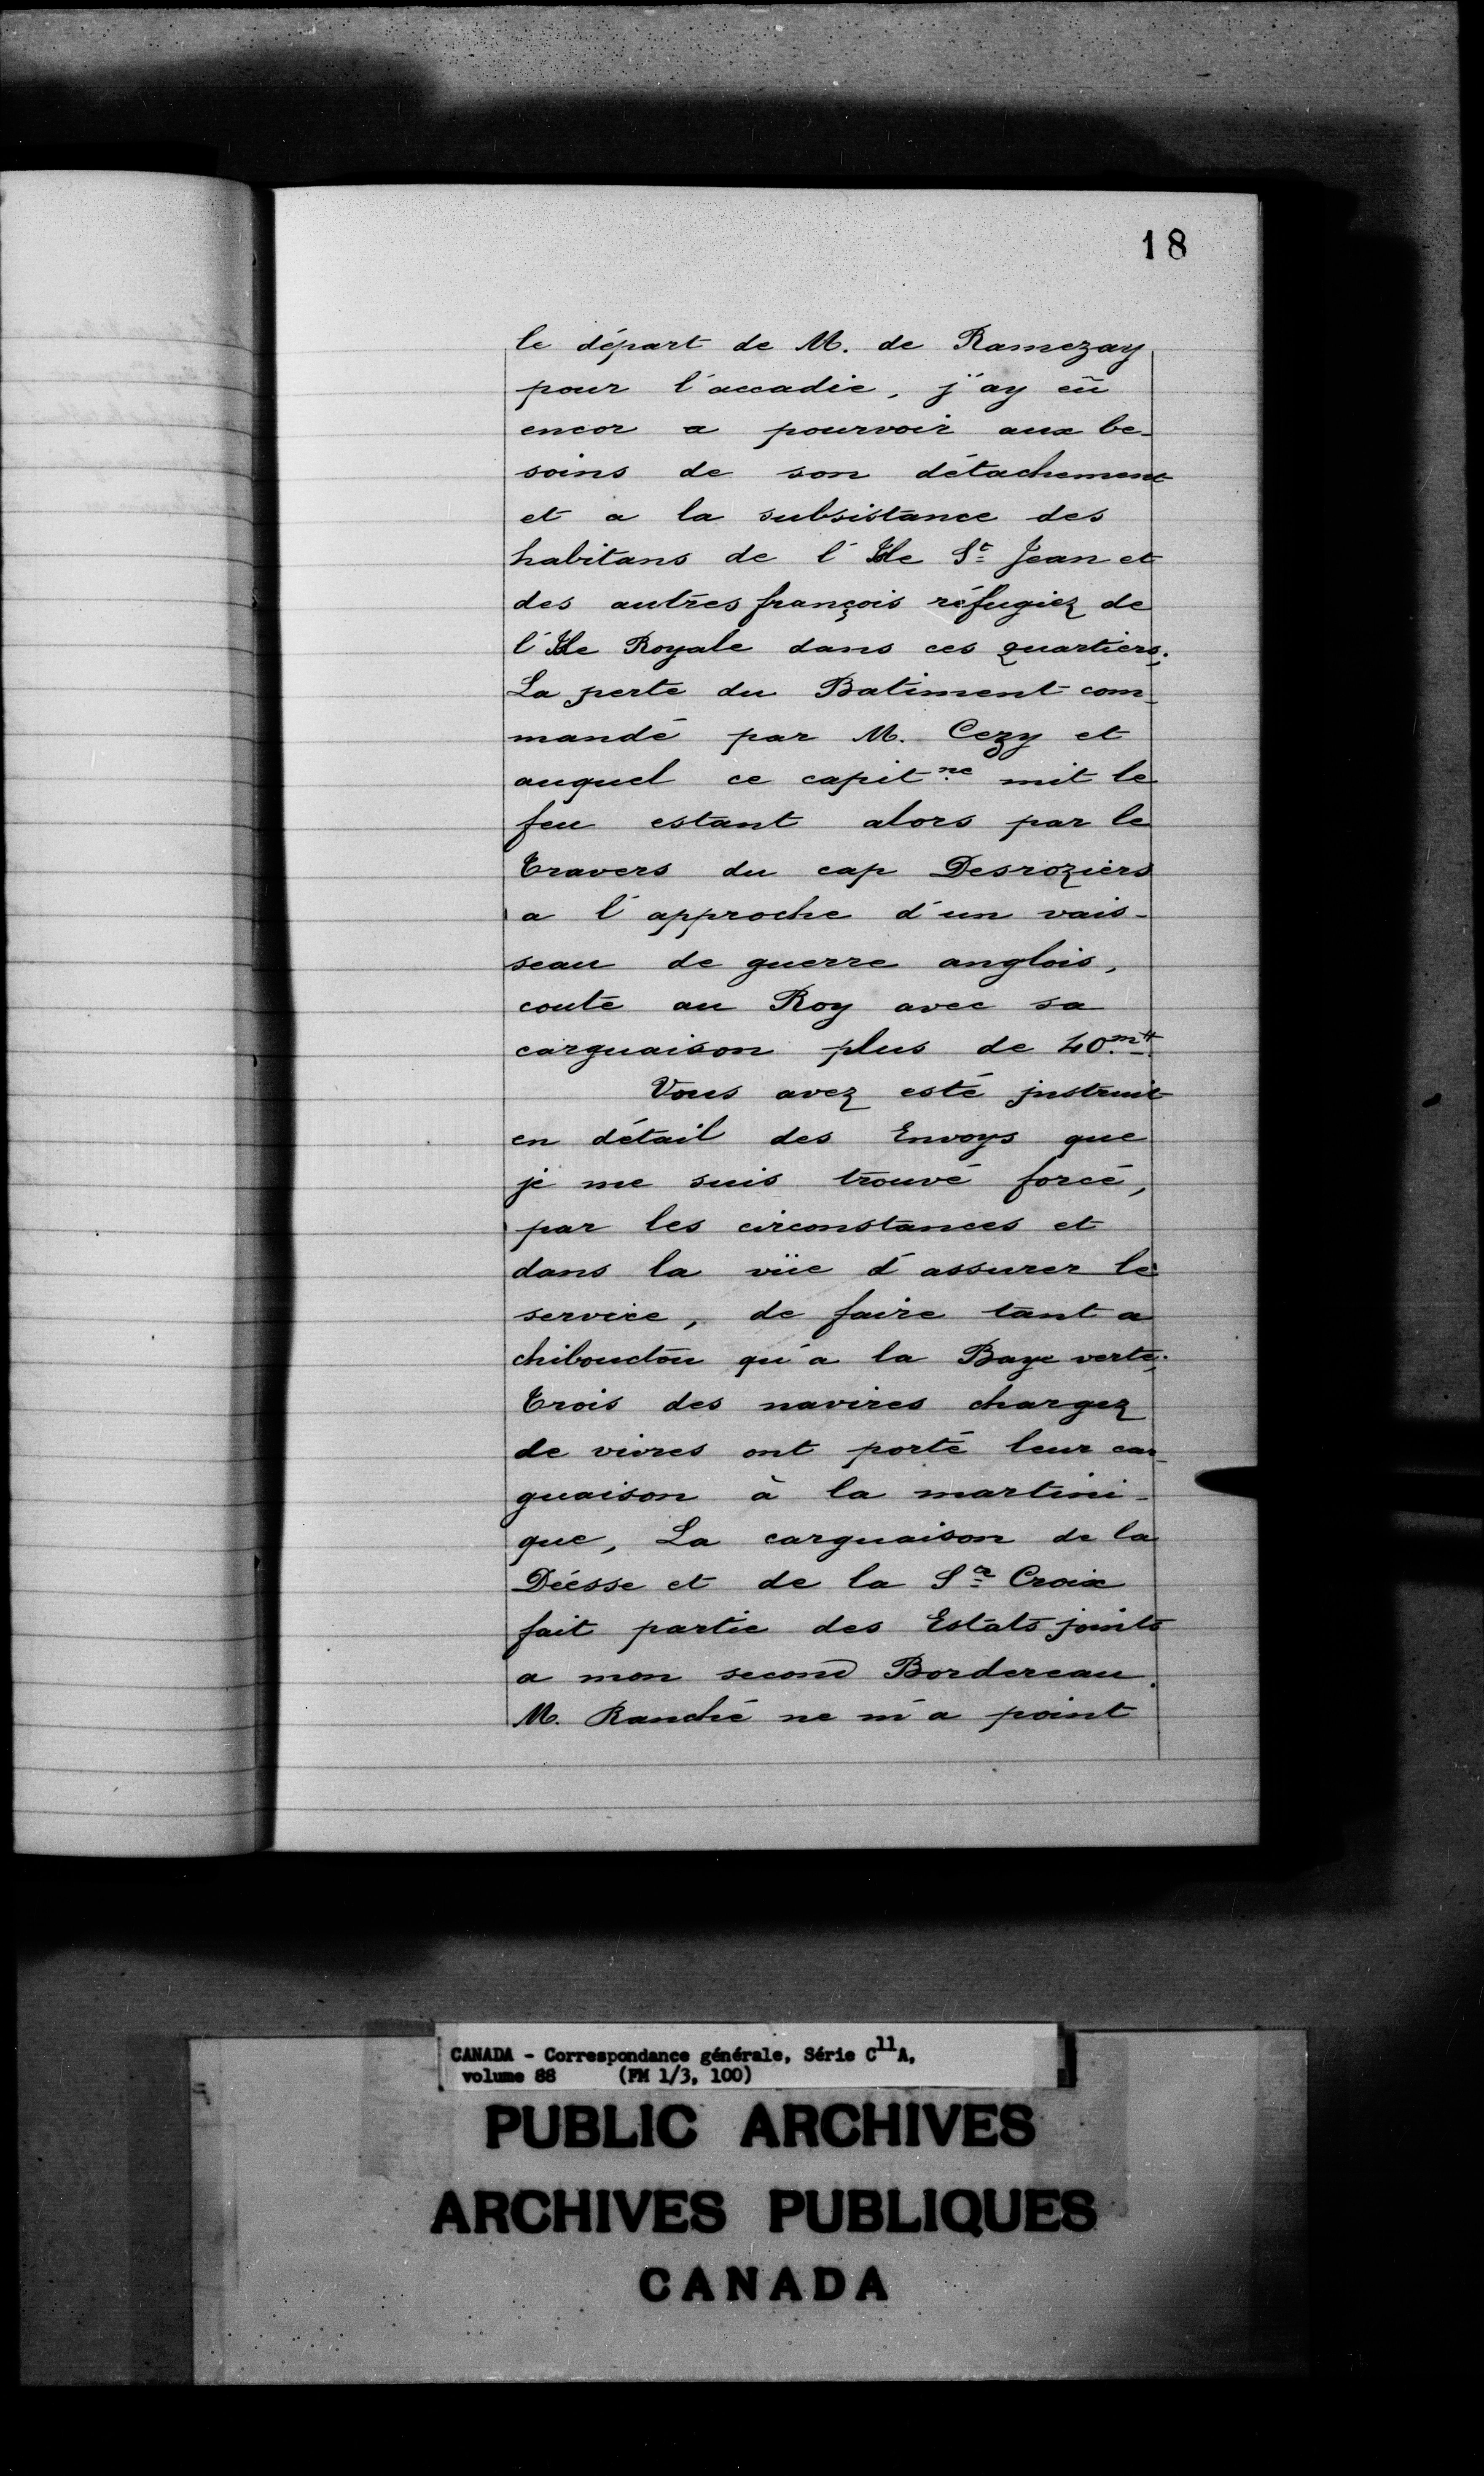 18
le départ de M. de Ramezay
pour l'accadie, j'ay eü
encor a pourvoir aux be-
soins de son détachement
et a la subsistance des
habitans de l'Ile St Jean et
des autres françois réfugiez de
l'Ile Royale dans ces quartiers.
La perte du Batiment com-
mandé par M. Cezy et
auquel ce capitne mit le
feu estant alors par le
travers du cap Desroziers
a l'approche d'un vais-
seau de guerre anglois,
coute au Roy avec sa
carguaison plus de 40.m₶
Vous avez esté instruit
en détail des Envoys que
je me suis trouvé forcé,
par les circonstances et
dans la vüe d'assurer le
service, de faire tant a
chibouctou qu'a la Baye verte.
Trois des navires chargez
de vivres ont porté leur car-
guaison à la martini-
que, La carguaison de la
Déesse et de la Se Croix
fait partie des Estats joints
a mon second Bordereau.
M. Ranché ne m'a point
CANADA - Correspondance générale, Série C11A,
volume 88 (FM 1/3, 100)
PUBLIC ARCHIVES
ARCHIVES PUBLIQUES
CANADA